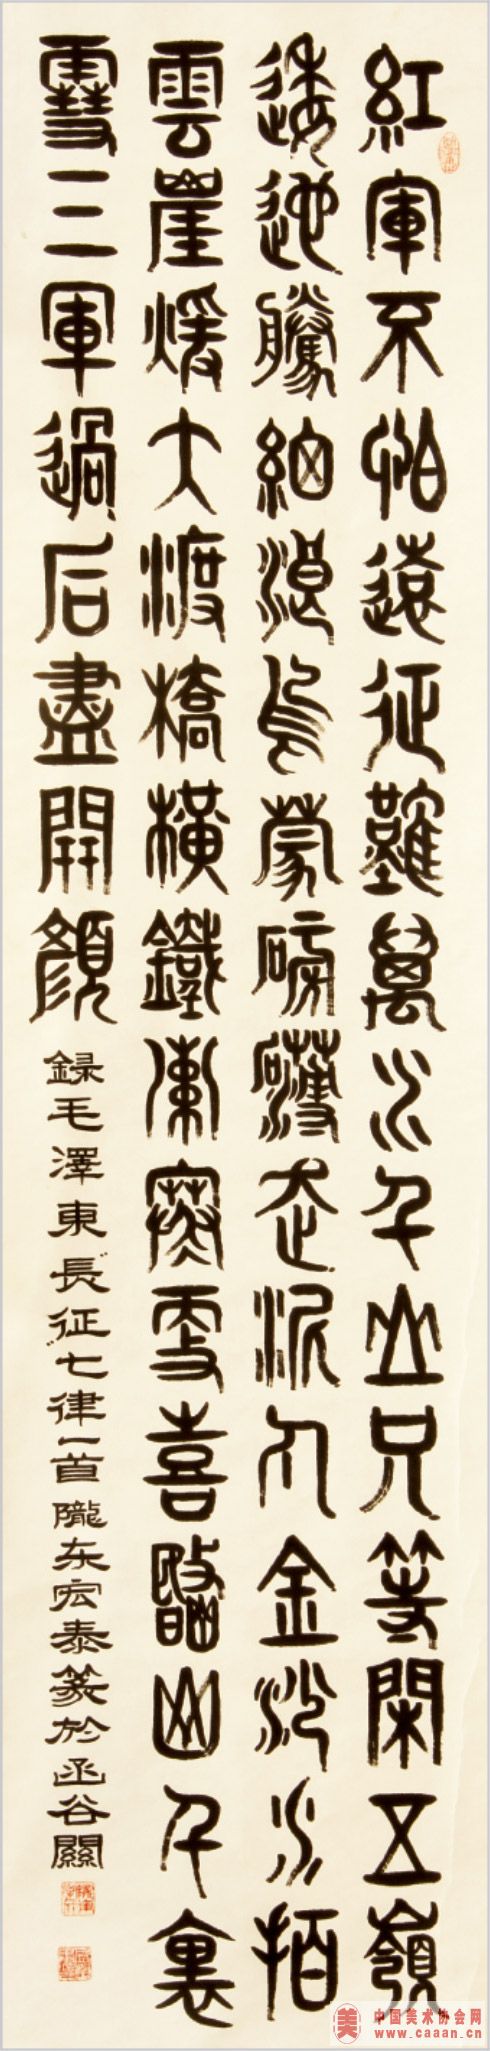 紅軍不怕遠征難萬水千山只等閑五嶺
逶迤騰細浪烏蒙磅礴走泥丸金沙水拍
雲崖暖大渡橋橫鐵索寒更喜岷山千裏
雪三軍過后盡開顏
録毛澤東長征七律一首隴东宏泰篆於函谷關
美 中国美术协会网
www.caaan.cn